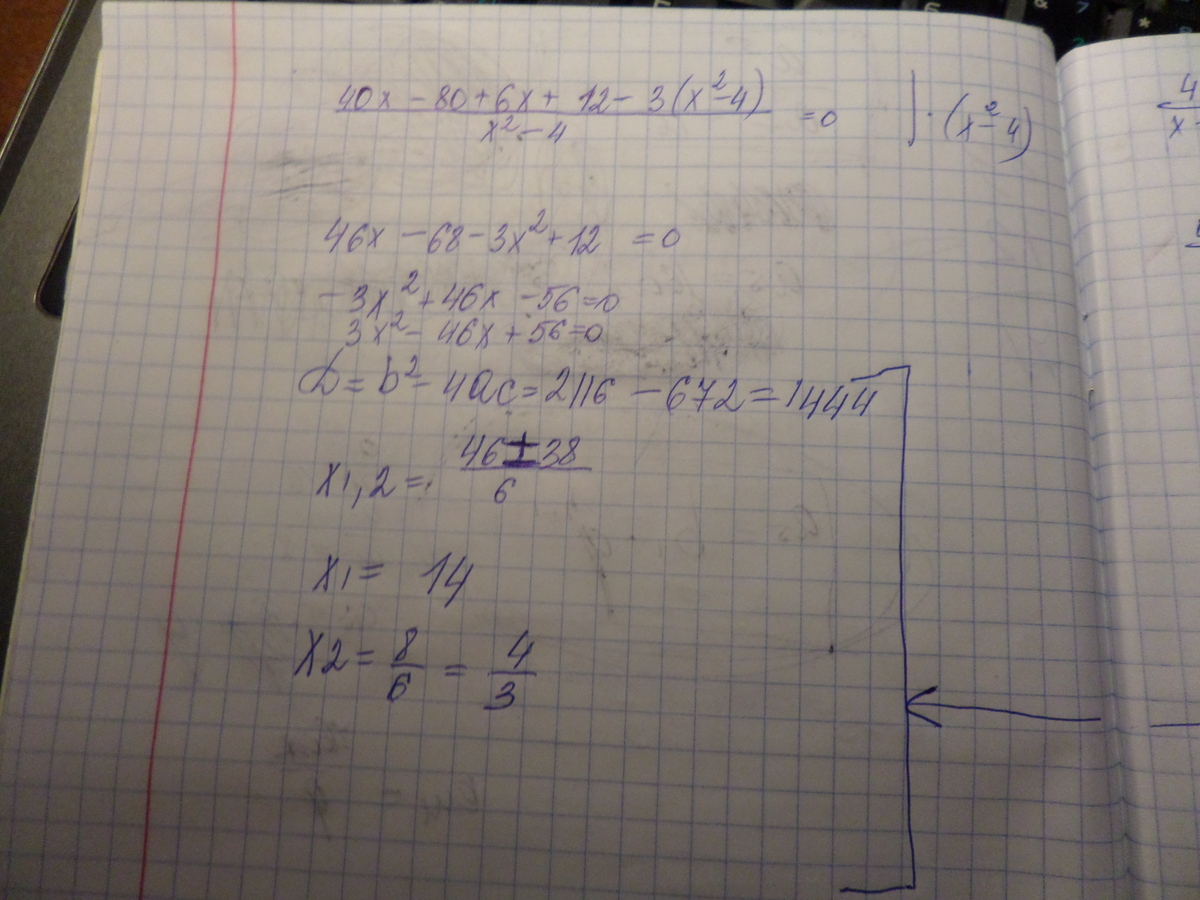 40x - 80 + 6x + 12 - 3(x² - 4)
x² - 4
= 0 | · (x² - 4)
46x - 68 - 3x² + 12 = 0
-3x² + 46x - 56 = 0
3x² - 46x + 56 = 0
D = b² - 4ac = 2116 - 672 = 1444
x1,2 = 46 ± 38 / 6
x1 = 14
x2 = 8/6 = 4/3
4
x -